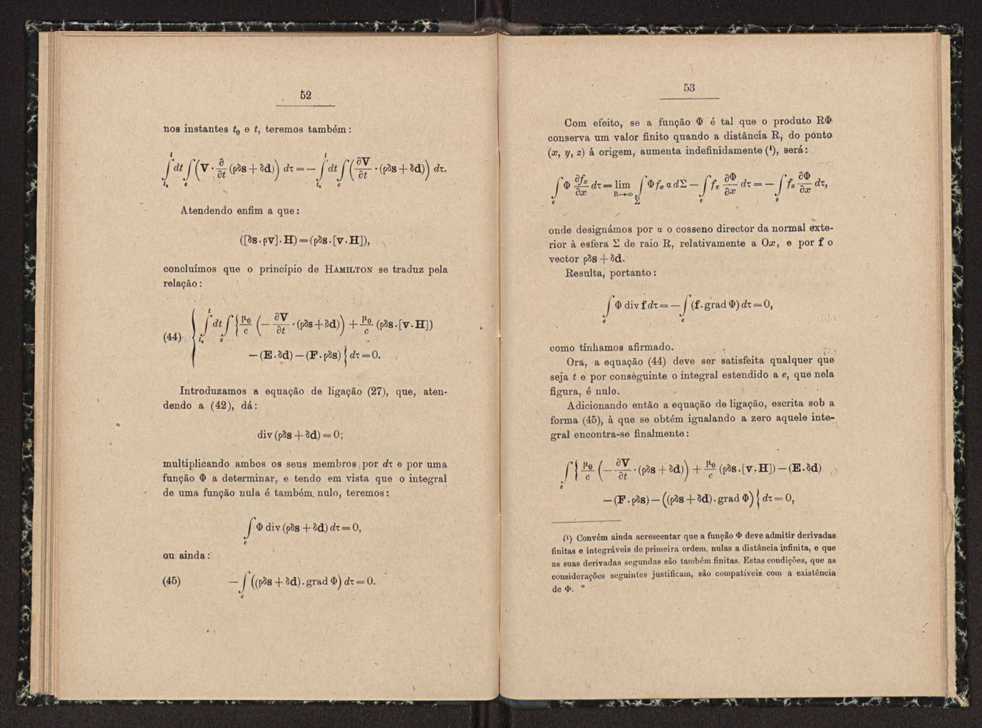 52
nos instantes t₀ e t, teremos também:
∫_{t₀}^{t} dt ∫_e (V · ∂/∂t (ρδs + δd)) dτ = − ∫_{t₀}^{t} dt ∫_e (∂V/∂t · (ρδs + δd)) dτ.
Atendendo enfim a que:
([δs . ρv] . H) = (ρδs . [v . H]),
concluímos que o princípio de HAMILTON se traduz pela
relação:
(44) { ∫_{t₀}^{t} dt ∫_e { μ₀/c (− ∂V/∂t · (ρδs + δd)) + μ₀/c (ρδs . [v . H])
− (E . δd) − (F . ρδs) } dτ = 0.
Introduzamos a equação de ligação (27), que, aten-
dendo a (42), dá:
div (ρδs + δd) = 0;
multiplicando ambos os seus membros por dτ e por uma
função Φ a determinar, e tendo em vista que o integral
de uma função nula é também nulo, teremos:
∫_e Φ div (ρδs + δd) dτ = 0,
ou ainda:
(45) − ∫_e ((ρδs + δd) . grad Φ) dτ = 0.
53
Com efeito, se a função Φ é tal que o produto RΦ
conserva um valor finito quando a distância R, do ponto
(x, y, z) á origem, aumenta indefinidamente (¹), será:
∫_e Φ ∂fₓ/∂x dτ = lim_{R→∞} ∫_Σ Φ fₓ α dΣ − ∫_e fₓ ∂Φ/∂x dτ = − ∫_e fₓ ∂Φ/∂x dτ,
onde designámos por α o cosseno director da normal exte-
rior à esfera Σ de raio R, relativamente a Ox, e por f o
vector ρδs + δd.
Resulta, portanto:
∫_e Φ div f dτ = − ∫_e (f . grad Φ) dτ = 0,
como tínhamos afirmado.
Ora, a equação (44) deve ser satisfeita qualquer que
seja t e por conseguinte o integral estendido a e, que nela
figura, é nulo.
Adicionando então a equação de ligação, escrita sob a
forma (45), à que se obtém igualando a zero aquele inte-
gral encontra-se finalmente:
∫_e { μ₀/c (− ∂V/∂t · (ρδs + δd)) + μ₀/c (ρδs . [v . H]) − (E . δd)
− (F . ρδs) − ((ρδs + δd) . grad Φ) } dτ = 0,
(¹) Convém ainda acrescentar que a função Φ deve admitir derivadas
finitas e integráveis de primeira ordem, nulas a distância infinita, e que
as suas derivadas segundas são também finitas. Estas condições, que as
considerações seguintes justificam, são compatíveis com a existência
de Φ.